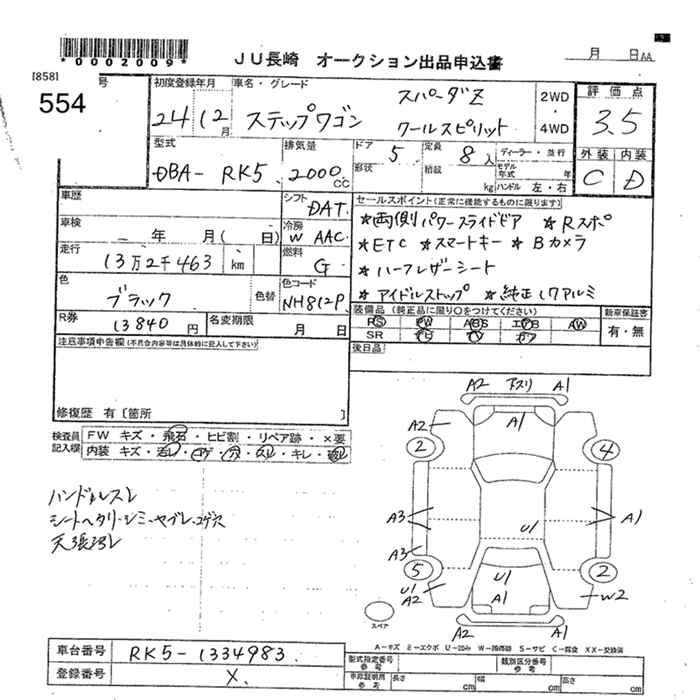 *0002009*
JU長崎 オークション出品申込書
月 日 AA
[858]
号
554
初度登録年月
24 12月
車名・グレード
ステップワゴン スパーダZ
クールスピリット
2WD
・
4WD
評価点
3.5
外装 内装
C D
型式
DBA- RK5
排気量
2000 cc
ドア
5
形状
定員
8人
積載
kg
ディーラー・並行
モデル年式 年
ハンドル 左・右
車歴
シフト
DAT
セールスポイント(正常に機能するものに限ります)
★両側パワースライドドア ★Rスポ
★ETC ★スマートキー ★Bカメラ
★ハーフレザーシート
★アイドルストップ ★純正17アルミ
車検
年 月( 日)
冷房
W AAC
走行
13万2千463 km
燃料
G
色
ブラック
色替
色コード
NH812P
R券
13840円
名変期限
月 日
装備品 (純正品に限り○をつけてください)
RS PW ABS エアB AW
SR ナビ TV カワ
新車保証書
有・無
後日品
注意事項申告欄(不具合内容等は具体的に記入して下さい)
修復歴 有〔箇所 〕
検査員記入欄
FW キズ・飛石・ヒビ割・リペア跡・×要
内装 キズ・汚レ・コゲ・穴・スレ・キレ・破レ
ハンドルスレ
シートヘタリ・シミ・ヤブレ・コゲ穴
天張汚レ
A2 アスリ A1
A2 A1
2 4
A3 U1 A1
A3
5 U1 2
U1 A1 W2
A2
A2 A1
スペア
A-キズ E-エクボ U-凹み W-補修跡 S-サビ C-腐食 XX-交換済
車台番号
RK5-1334983
登録番号
X.
型式指定番号
参考
類別区分番号
参考
車庫証明用
参考
長さ cm
幅 cm
高さ cm